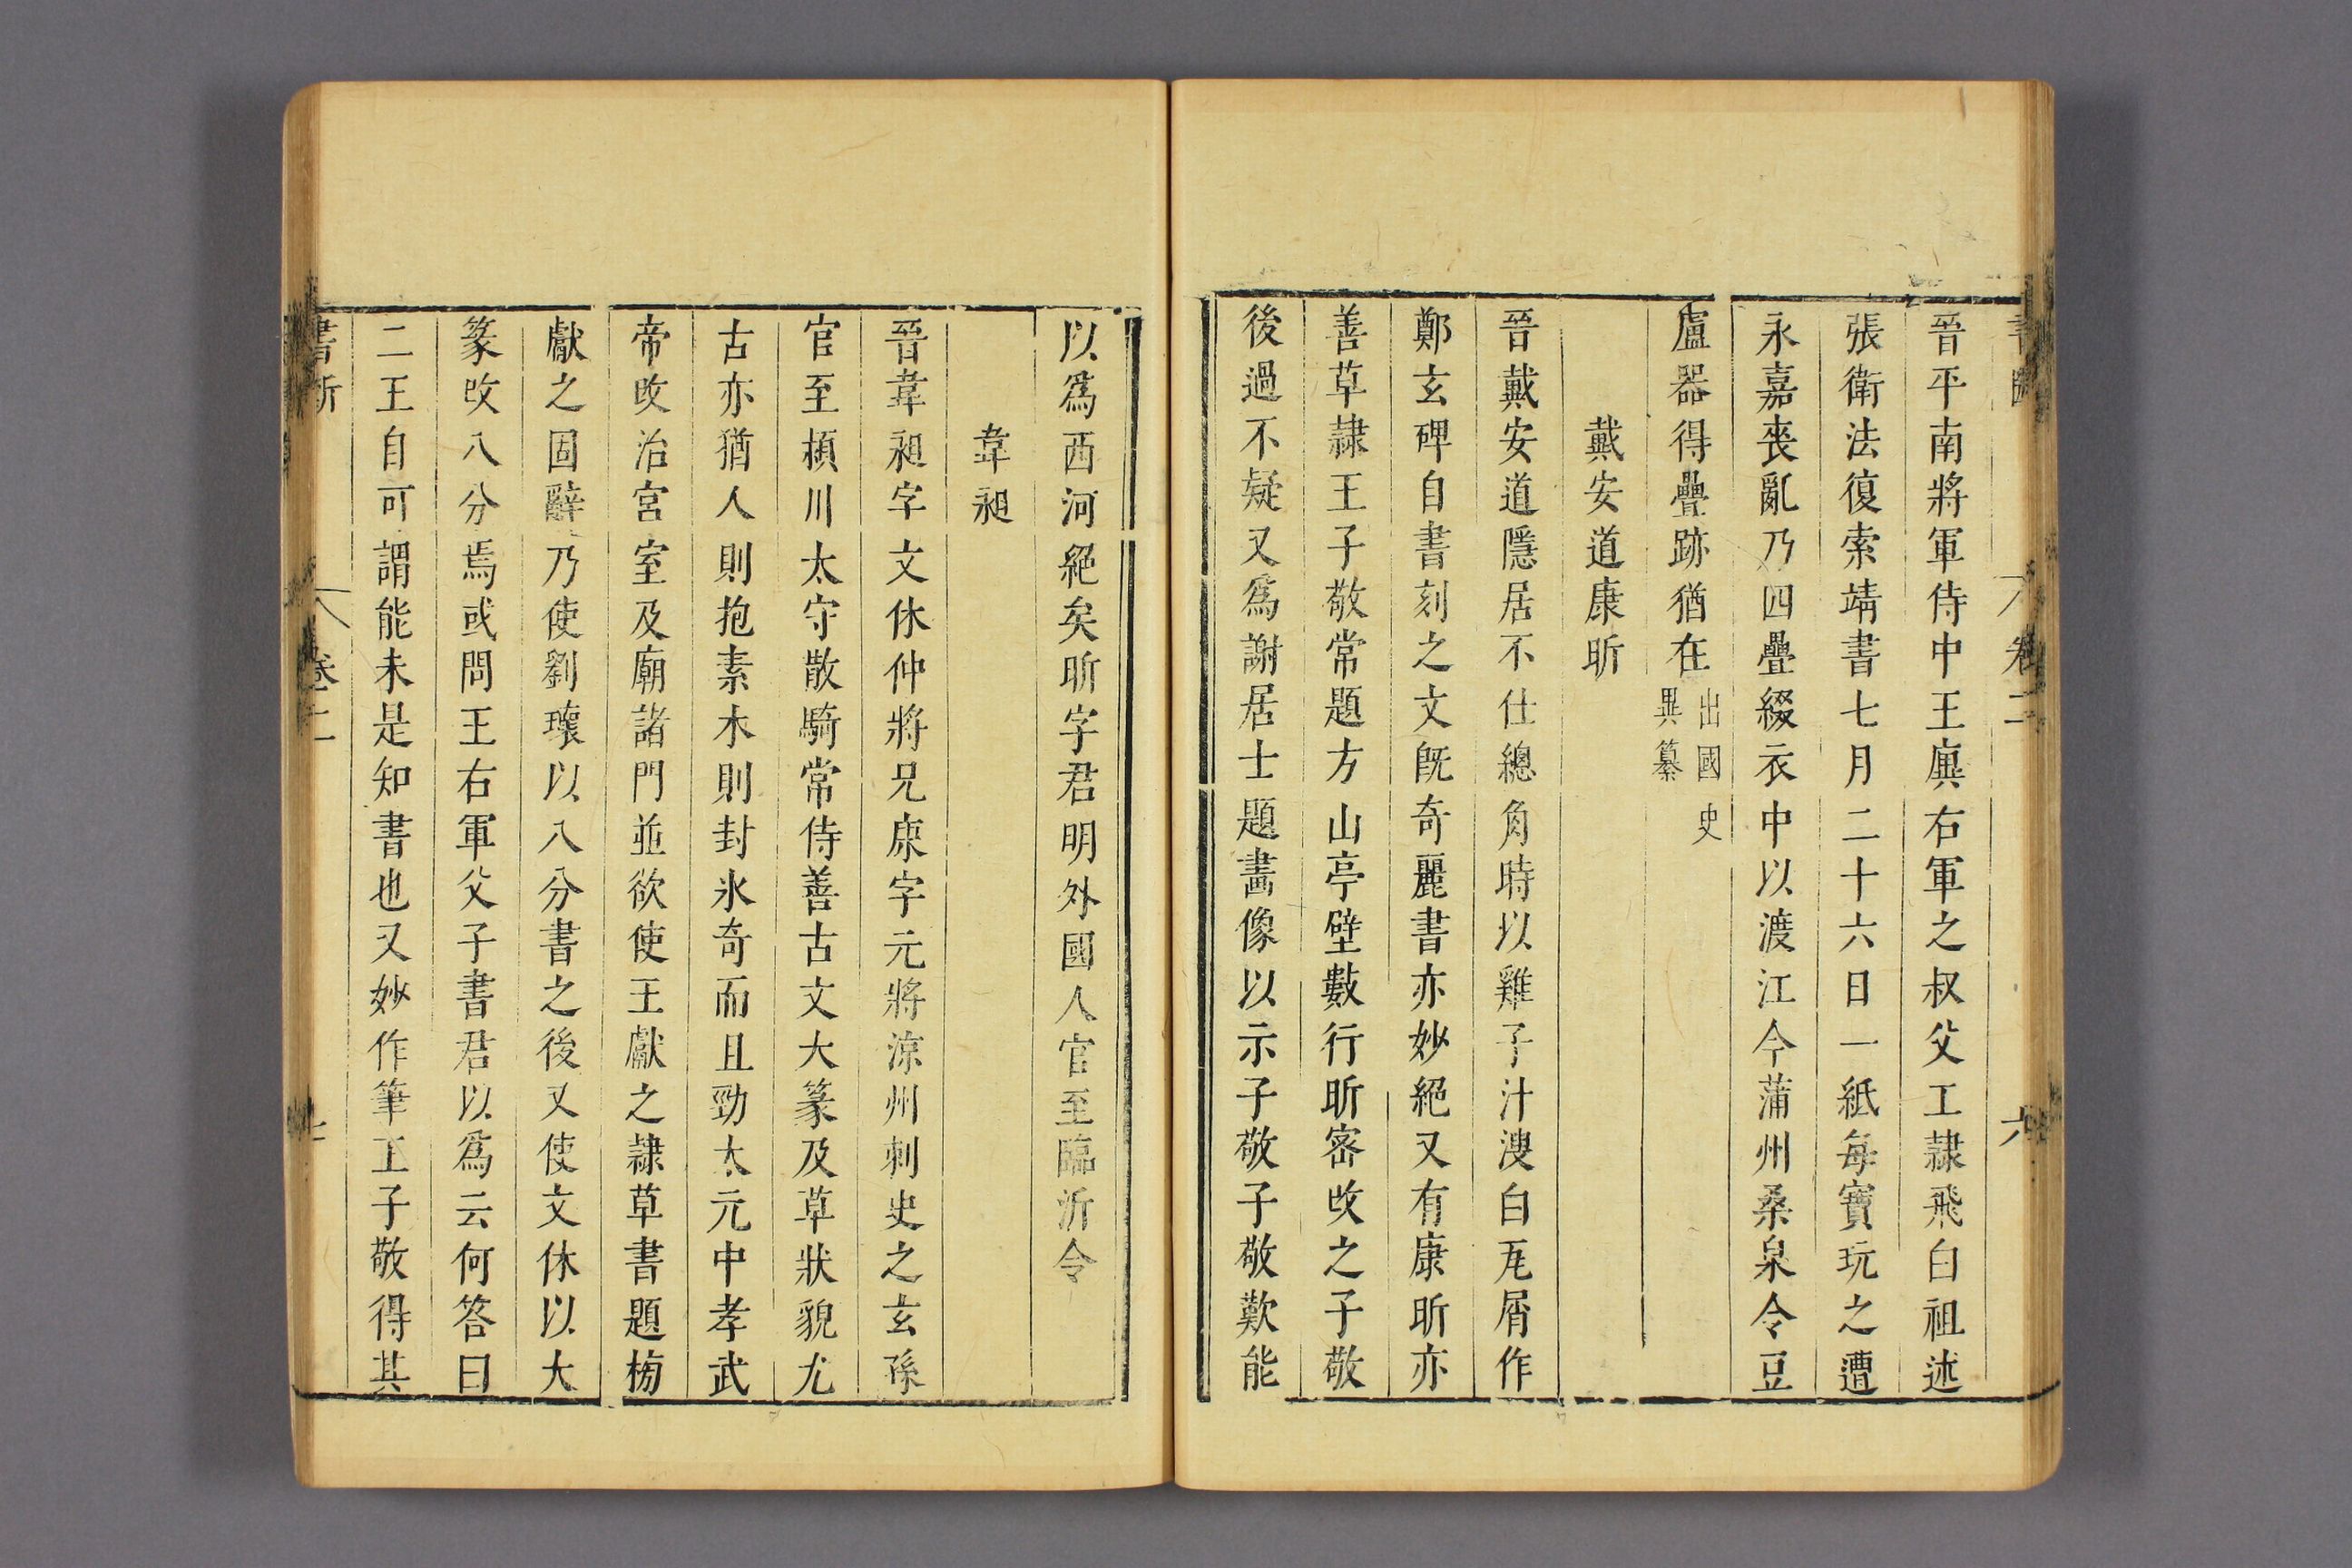 卷二
六
晉平南將軍侍中王廙右軍之叔父工隸飛白祖述
張衛法復索靖書七月二十六日一紙每寶玩之遭
永嘉喪亂乃四疊綴衣中以渡江今蒲州桑泉令豆
盧器得疊跡猶在出國史異纂
戴安道康昕
晉戴安道隱居不仕總角時以雞子汁溲白瓦屑作
鄭玄碑自書刻之文旣奇麗書亦妙絕又有康昕亦
善草隸王子敬常題方山亭壁數行昕密改之子敬
後過不疑又爲謝居士題畵像以示子敬子敬歎能
以爲西河絕矣昕字君明外國人官至臨沂令
韋昶
晉韋昶字文休仲將兄康字元將涼州刺史之玄孫
官至潁川太守散騎常侍善古文大篆及草狀貌尤
古亦猶人則抱素木則封氷奇而且勁太元中孝武
帝改治宮室及廟諸門並欲使王獻之隸草書題榜
獻之固辭乃使劉瓌以八分書之後又使文休以大
篆改八分焉或問王右軍父子書君以爲云何答曰
二王自可謂能未是知書也又妙作筆王子敬得其
書斷
卷二